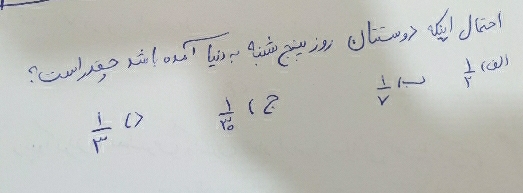 احتمال اینکه دوستتان روز پنج شنبه به دنیا آمده باشد چقدر است؟
الف) ۱/۲ ب) ۱/۷ ج) ۱/۳۰ د) ۱/۳